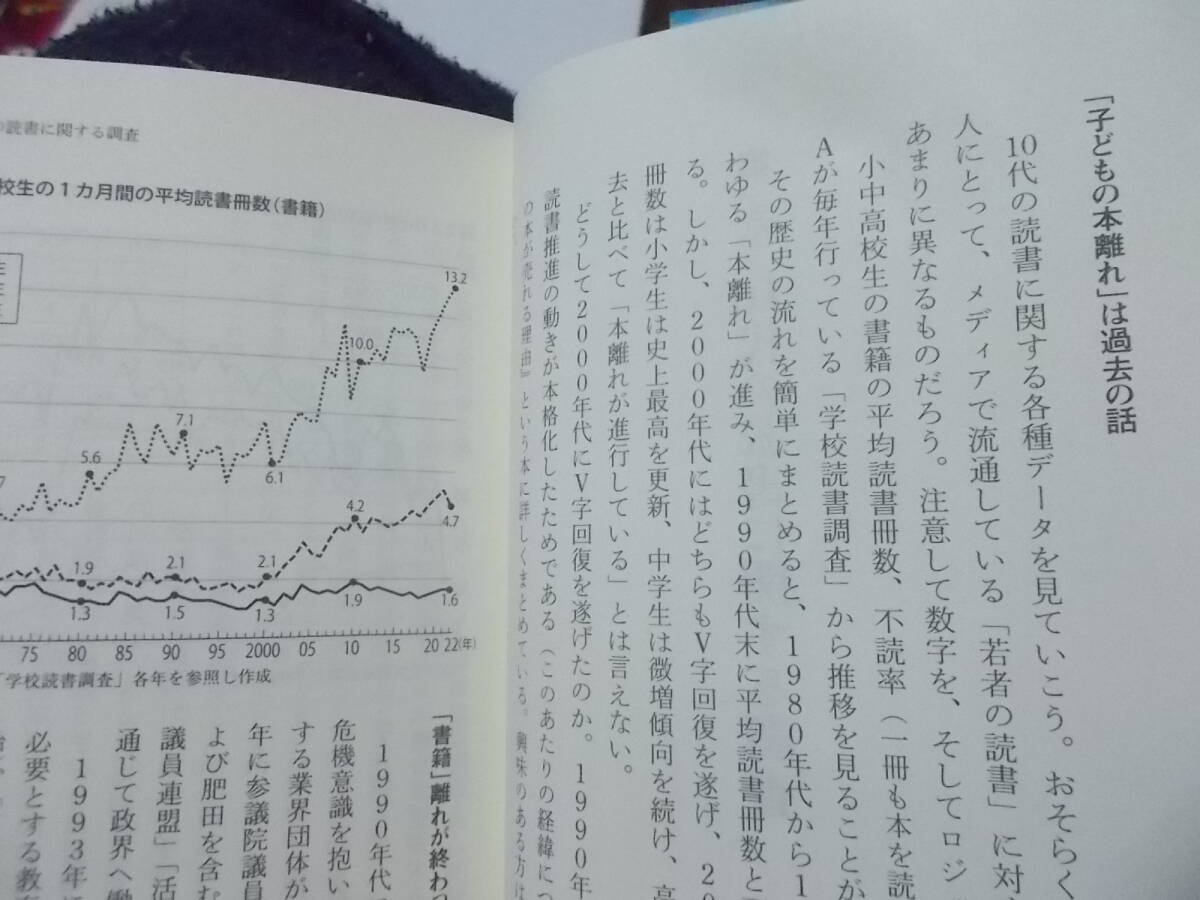 「子どもの本離れ」は過去の話
10代の読書に関する各種データを見ていこう。おそらく
人にとって、メディアで流通している「若者の読書」に対
あまりに異なるものだろう。注意して数字を、そしてロジ
小中高校生の書籍の平均読書冊数、不読率（一冊も本を読
Aが毎年行っている「学校読書調査」から推移を見ることが
その歴史の流れを簡単にまとめると、1980年代から1
わゆる「本離れ」が進み、1990年代末に平均読書冊数と
る。しかし、2000年代にはどちらもV字回復を遂げ、20
冊数は小学生は史上最高を更新、中学生は微増傾向を続け、高
去と比べて「本離れが進行している」とは言えない。
どうして2000年代にV字回復を遂げたのか。1990年
読書推進の動きが本格化したためである（このあたりの経緯につ
の本が売れる理由』という本に詳しくまとめている。興味のある方は
の読書に関する調査
校生の1カ月間の平均読書冊数（書籍）
13.2
10.0
7.1
5.6
6.1
4.2
4.7
1.9
2.1
2.1
1.3
1.5
1.3
1.9
1.6
75 80 85 90 95 2000 05 10 15 20 22(年)
「学校読書調査」各年を参照し作成
「書籍」離れが終わ
1990年代
危機意識を抱い
する業界団体が
年に参議院議員
よび肥田を含む
議員連盟」「活
通じて政界へ働
1993年に
必要とする教